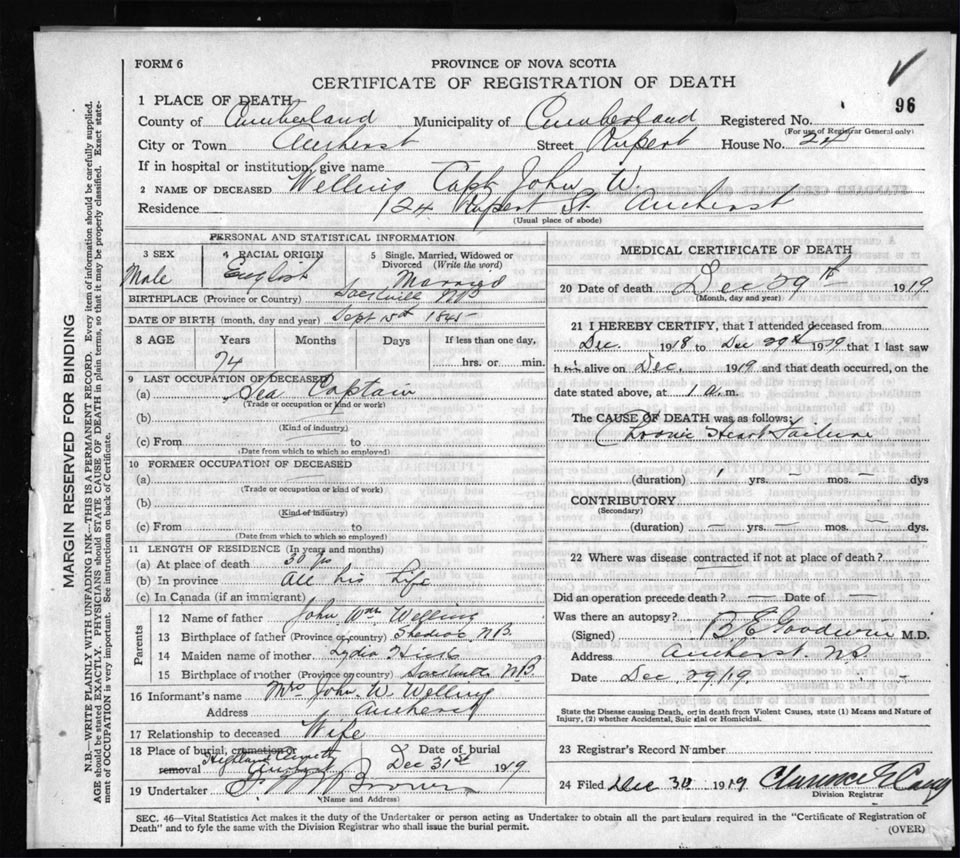 FORM 6
PROVINCE OF NOVA SCOTIA
CERTIFICATE OF REGISTRATION OF DEATH
96
1 PLACE OF DEATH
County of Cumberland Municipality of Cumberland Registered No.
(For use of Registrar General only)
City or Town Amherst Street Rupert House No. 24
If in hospital or institution, give name
2 NAME OF DECEASED Welling Capt John W.
Residence 124 Rupert St. Amherst
(Usual place of abode)
PERSONAL AND STATISTICAL INFORMATION
3 SEX Male
4 RACIAL ORIGIN English
5 Single, Married, Widowed or Divorced (Write the word) Married
BIRTHPLACE (Province or Country) Sackville NB
DATE OF BIRTH (month, day and year) Sept 1845
8 AGE Years Months Days If less than one day,
74 hrs. or min.
9 LAST OCCUPATION OF DECEASED
(a) Sea Captain
(Trade or occupation or kind or work)
(b)
(Kind of industry)
(c) From to
(Date from which to which so employed)
10 FORMER OCCUPATION OF DECEASED
(a)
(Trade or occupation or kind of work)
(b)
(Kind of industry)
(c) From to
(Date from which to which so employed)
11 LENGTH OF RESIDENCE (In years and months)
(a) At place of death 30 yrs
(b) In province all his life
(c) In Canada (if an immigrant)
Parents
12 Name of father John Wm Welling
13 Birthplace of father (Province or country) Shediac N.B.
14 Maiden name of mother Lydia
15 Birthplace of mother (Province or country) Sackville N.B.
16 Informant's name Mrs John W. Welling
Address Amherst
17 Relationship to deceased Wife
18 Place of burial, cremation or removal Highland Cemetery Amherst
Date of burial Dec 31st 1919
19 Undertaker Brown
(Name and Address)
MEDICAL CERTIFICATE OF DEATH
20 Date of death Dec 29th 1919
(Month, day and year)
21 I HEREBY CERTIFY, that I attended deceased from
Dec. 1918 to Dec 29th 1919 that I last saw
him alive on Dec. 1919 and that death occurred, on the
date stated above, at 1 a.m.
The CAUSE OF DEATH was as follows:
Chronic Heart Failure
(duration) 1 yrs. mos. — dys
CONTRIBUTORY
(Secondary)
(duration) — yrs. — mos. — dys.
22 Where was disease contracted if not at place of death?
Did an operation precede death? — Date of —
Was there an autopsy?
(Signed) B E Goodwin M.D.
Address Amherst. N.S.
Date Dec 29/19
State the Disease causing Death, or in death from Violent Causes, state (1) Means and Nature of
Injury, (2) whether Accidental, Suicidal or Homicidal.
23 Registrar's Record Number
24 Filed Dec 30 1919 Clarence
Division Registrar
SEC. 46—Vital Statistics Act makes it duty of the Undertaker or person acting as Undertaker to obtain all the particulars required in the "Certificate of Registration of
Death" and to fyle the same with the Division Registrar who shall issue the burial permit.
(OVER)
MARGIN RESERVED FOR BINDING
N.B.—WRITE PLAINLY WITH UNFADING INK—THIS IS A PERMANENT RECORD. Every item of information should be carefully supplied.
AGE should be stated EXACTLY. PHYSICIANS should STATE CAUSE OF DEATH in plain terms, so that it may be properly classified. Exact state-
ment of OCCUPATION is very important. See instructions on back of Certificate.